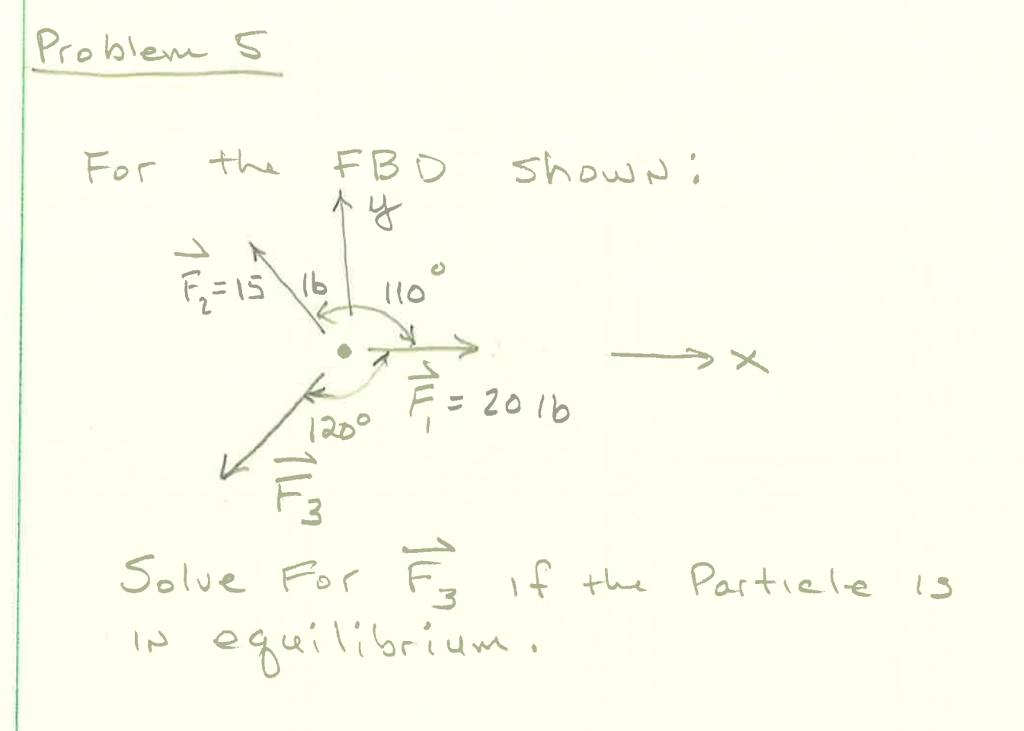 Problem 5
For the FBD shown:
y
F₂ = 15 lb
110°
x
F₁ = 20 lb
120°
F₃
Solve For F₃ if the Particle is
in equilibrium.